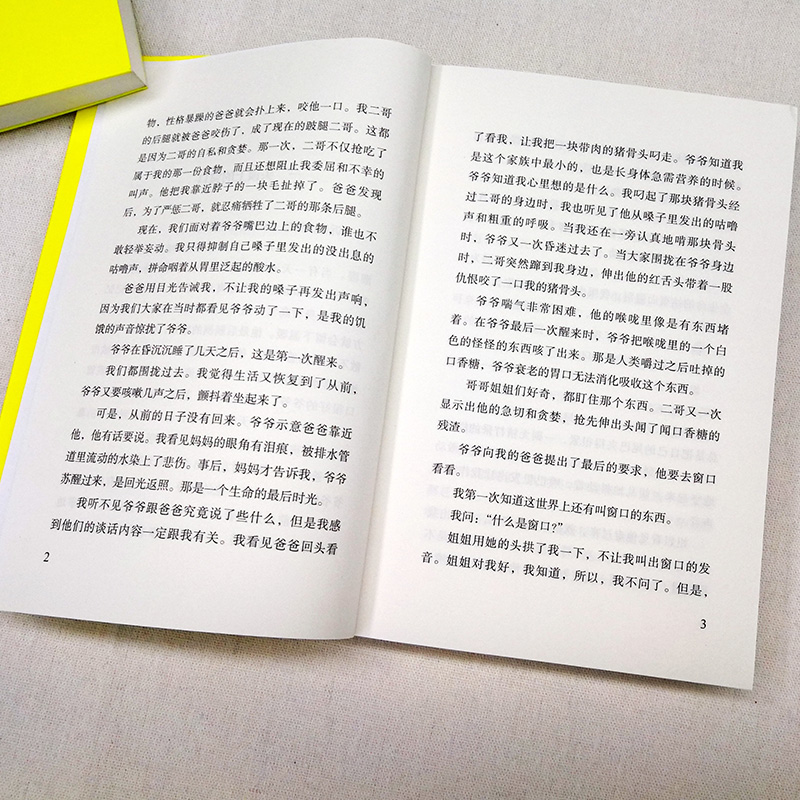 物，性格暴躁的爸爸就会扑上来，咬他一口。我二哥
的后腿就被爸爸咬伤了，成了现在的跛腿二哥。这都
是因为二哥的自私和贪婪。那一次，二哥不仅抢吃了
属于我的那一份食物，而且还想阻止我委屈和不幸的
叫声。他把我靠近脖子的一块毛扯掉了。爸爸发现
后，为了严惩二哥，就忍痛牺牲了二哥的那条后腿。
现在，我们面对着爷爷嘴巴边上的食物，谁也不
敢轻举妄动。我只得抑制自己嗓子里发出的没出息的
咕噜声，拼命咽着从胃里泛起的酸水。
爸爸用目光告诫我，不让我的嗓子再发出声响，
因为我们大家在当时都看见爷爷动了一下，是我的饥
饿的声音惊扰了爷爷。
爷爷在昏沉沉睡了几天之后，这是第一次醒来。
我们都围拢过去。我觉得生活又恢复到了从前，
爷爷又要咳嗽几声之后，颤抖着坐起来了。
可是，从前的日子没有回来。爷爷示意爸爸靠近
他，他有话要说。我看见妈妈的眼角有泪痕，被排水管
道里流动的水染上了悲伤。事后，妈妈才告诉我，爷爷
苏醒过来，是回光返照。那是一个生命的最后时光。
我听不见爷爷跟爸爸究竟说了些什么，但是我感
到他们的谈话内容一定跟我有关。我看见爸爸回头看
2
了看我，让我把一块带肉的猪骨头叼走。爷爷知道我
是这个家族中最小的，也是长身体急需营养的时候。
爷爷知道我心里想的是什么。我叼起了那块猪骨头经
过二哥的身边时，我也听见了他从嗓子里发出的咕噜
声和粗重的呼吸。当我还在一旁认真地啃那块骨头
时，爷爷又一次昏迷过去了。当大家围拢在爷爷身边
时，二哥突然蹿到我身边，伸出他的红舌头带着一股
仇恨咬了一口我的猪骨头。
爷爷喘气非常困难，他的喉咙里像是有东西堵
着。在爷爷最后一次醒来时，爷爷把喉咙里的一个白
色的怪怪的东西咳了出来。那是人类嚼过之后吐掉的
口香糖，爷爷衰老的胃口无法消化吸收这个东西。
哥哥姐姐们好奇，都盯住那个东西。二哥又一次
显示出他的急切和贪婪，抢先伸出头闻了闻口香糖的
残渣。
爷爷向我的爸爸提出了最后的要求，他要去窗口
看看。
我第一次知道这世界上还有叫窗口的东西。
我问：“什么是窗口？”
姐姐用她的头拱了我一下，不让我叫出窗口的发
音。姐姐对我好，我知道，所以，我不问了。但是，
3